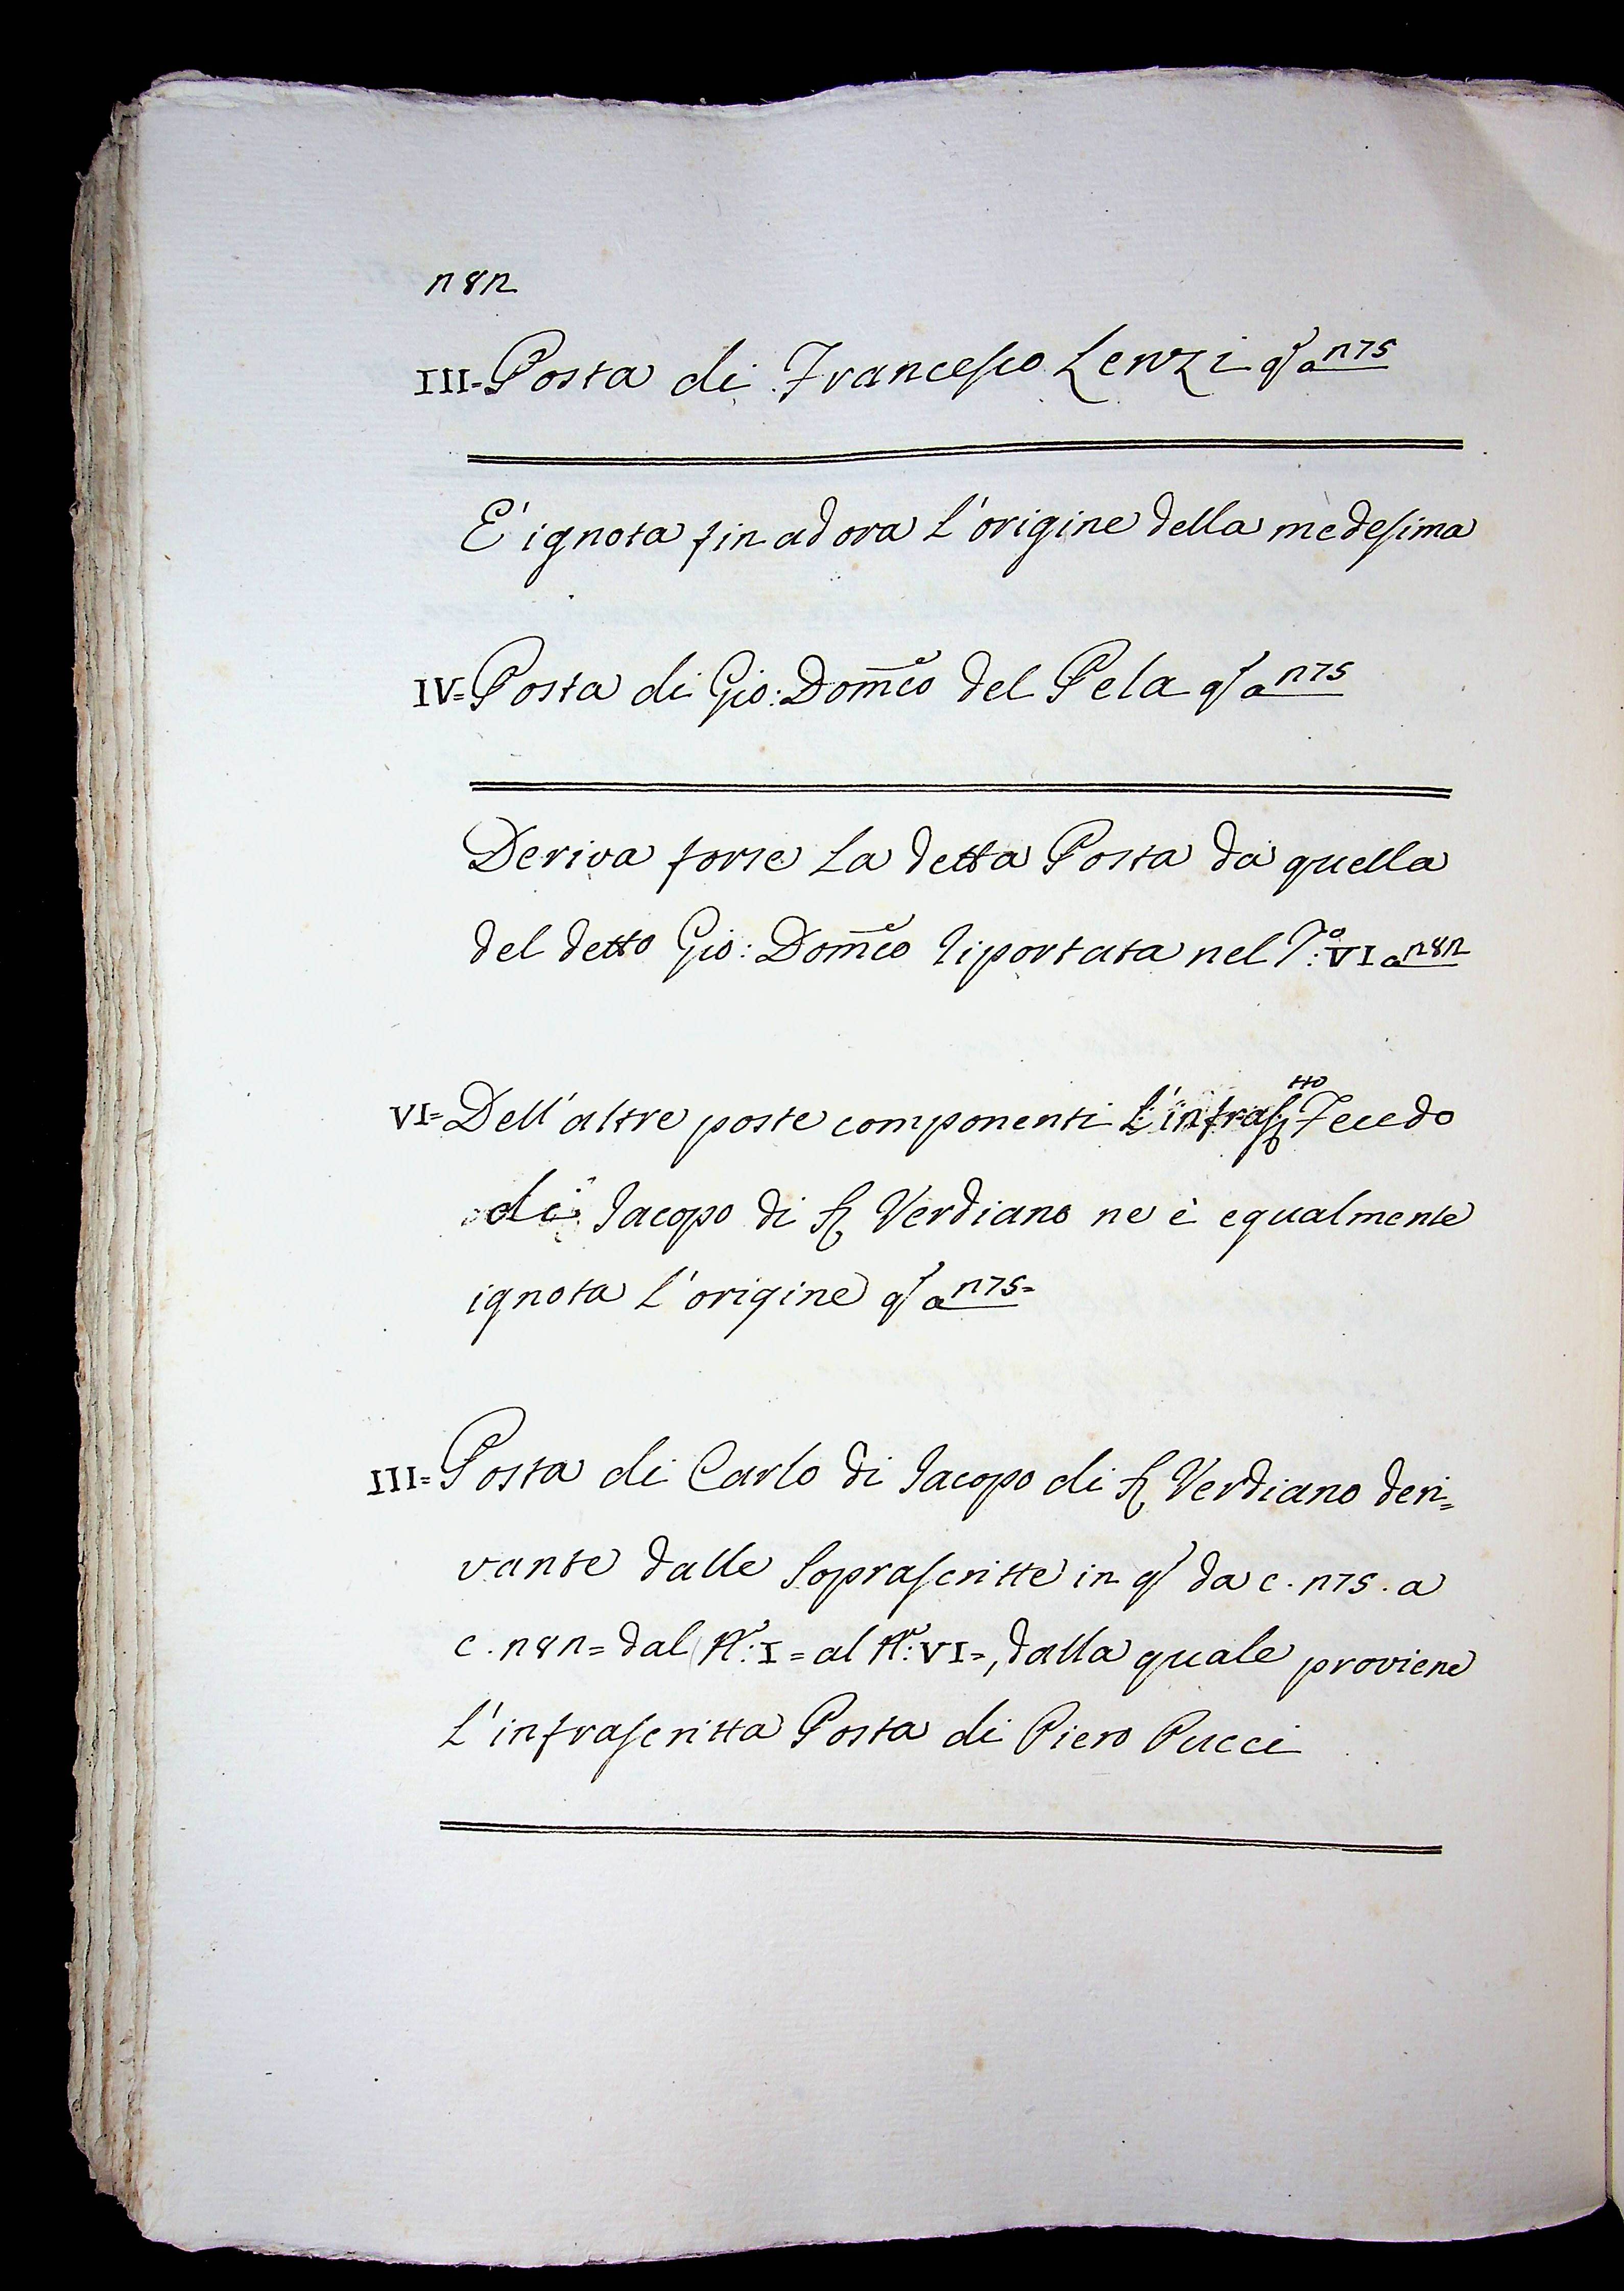 182
III=Posta di Francesco Lenzi qo a 175
E' ignota fin ad ora l'origine della medesima
IV=Posta di Gio: Dom̅co del Pela qo a 175
Deriva forse la detta Posta da quella
del detto Gio: Dom̅co riportata nel To: VI a 182
VI=Dell'altre poste componenti l'infrastto Feudo
di Jacopo di S Verdiano ne è egualmente
ignota l'origine qo a 175=
III=Posta di Carlo di Jacopo di S Verdiano deri=
vante dalle soprascritte in qo da c. 175. a
c. 182= dal No: I= al No: VI=, dalla quale proviene
l'infrascritta Posta di Piero Pucci